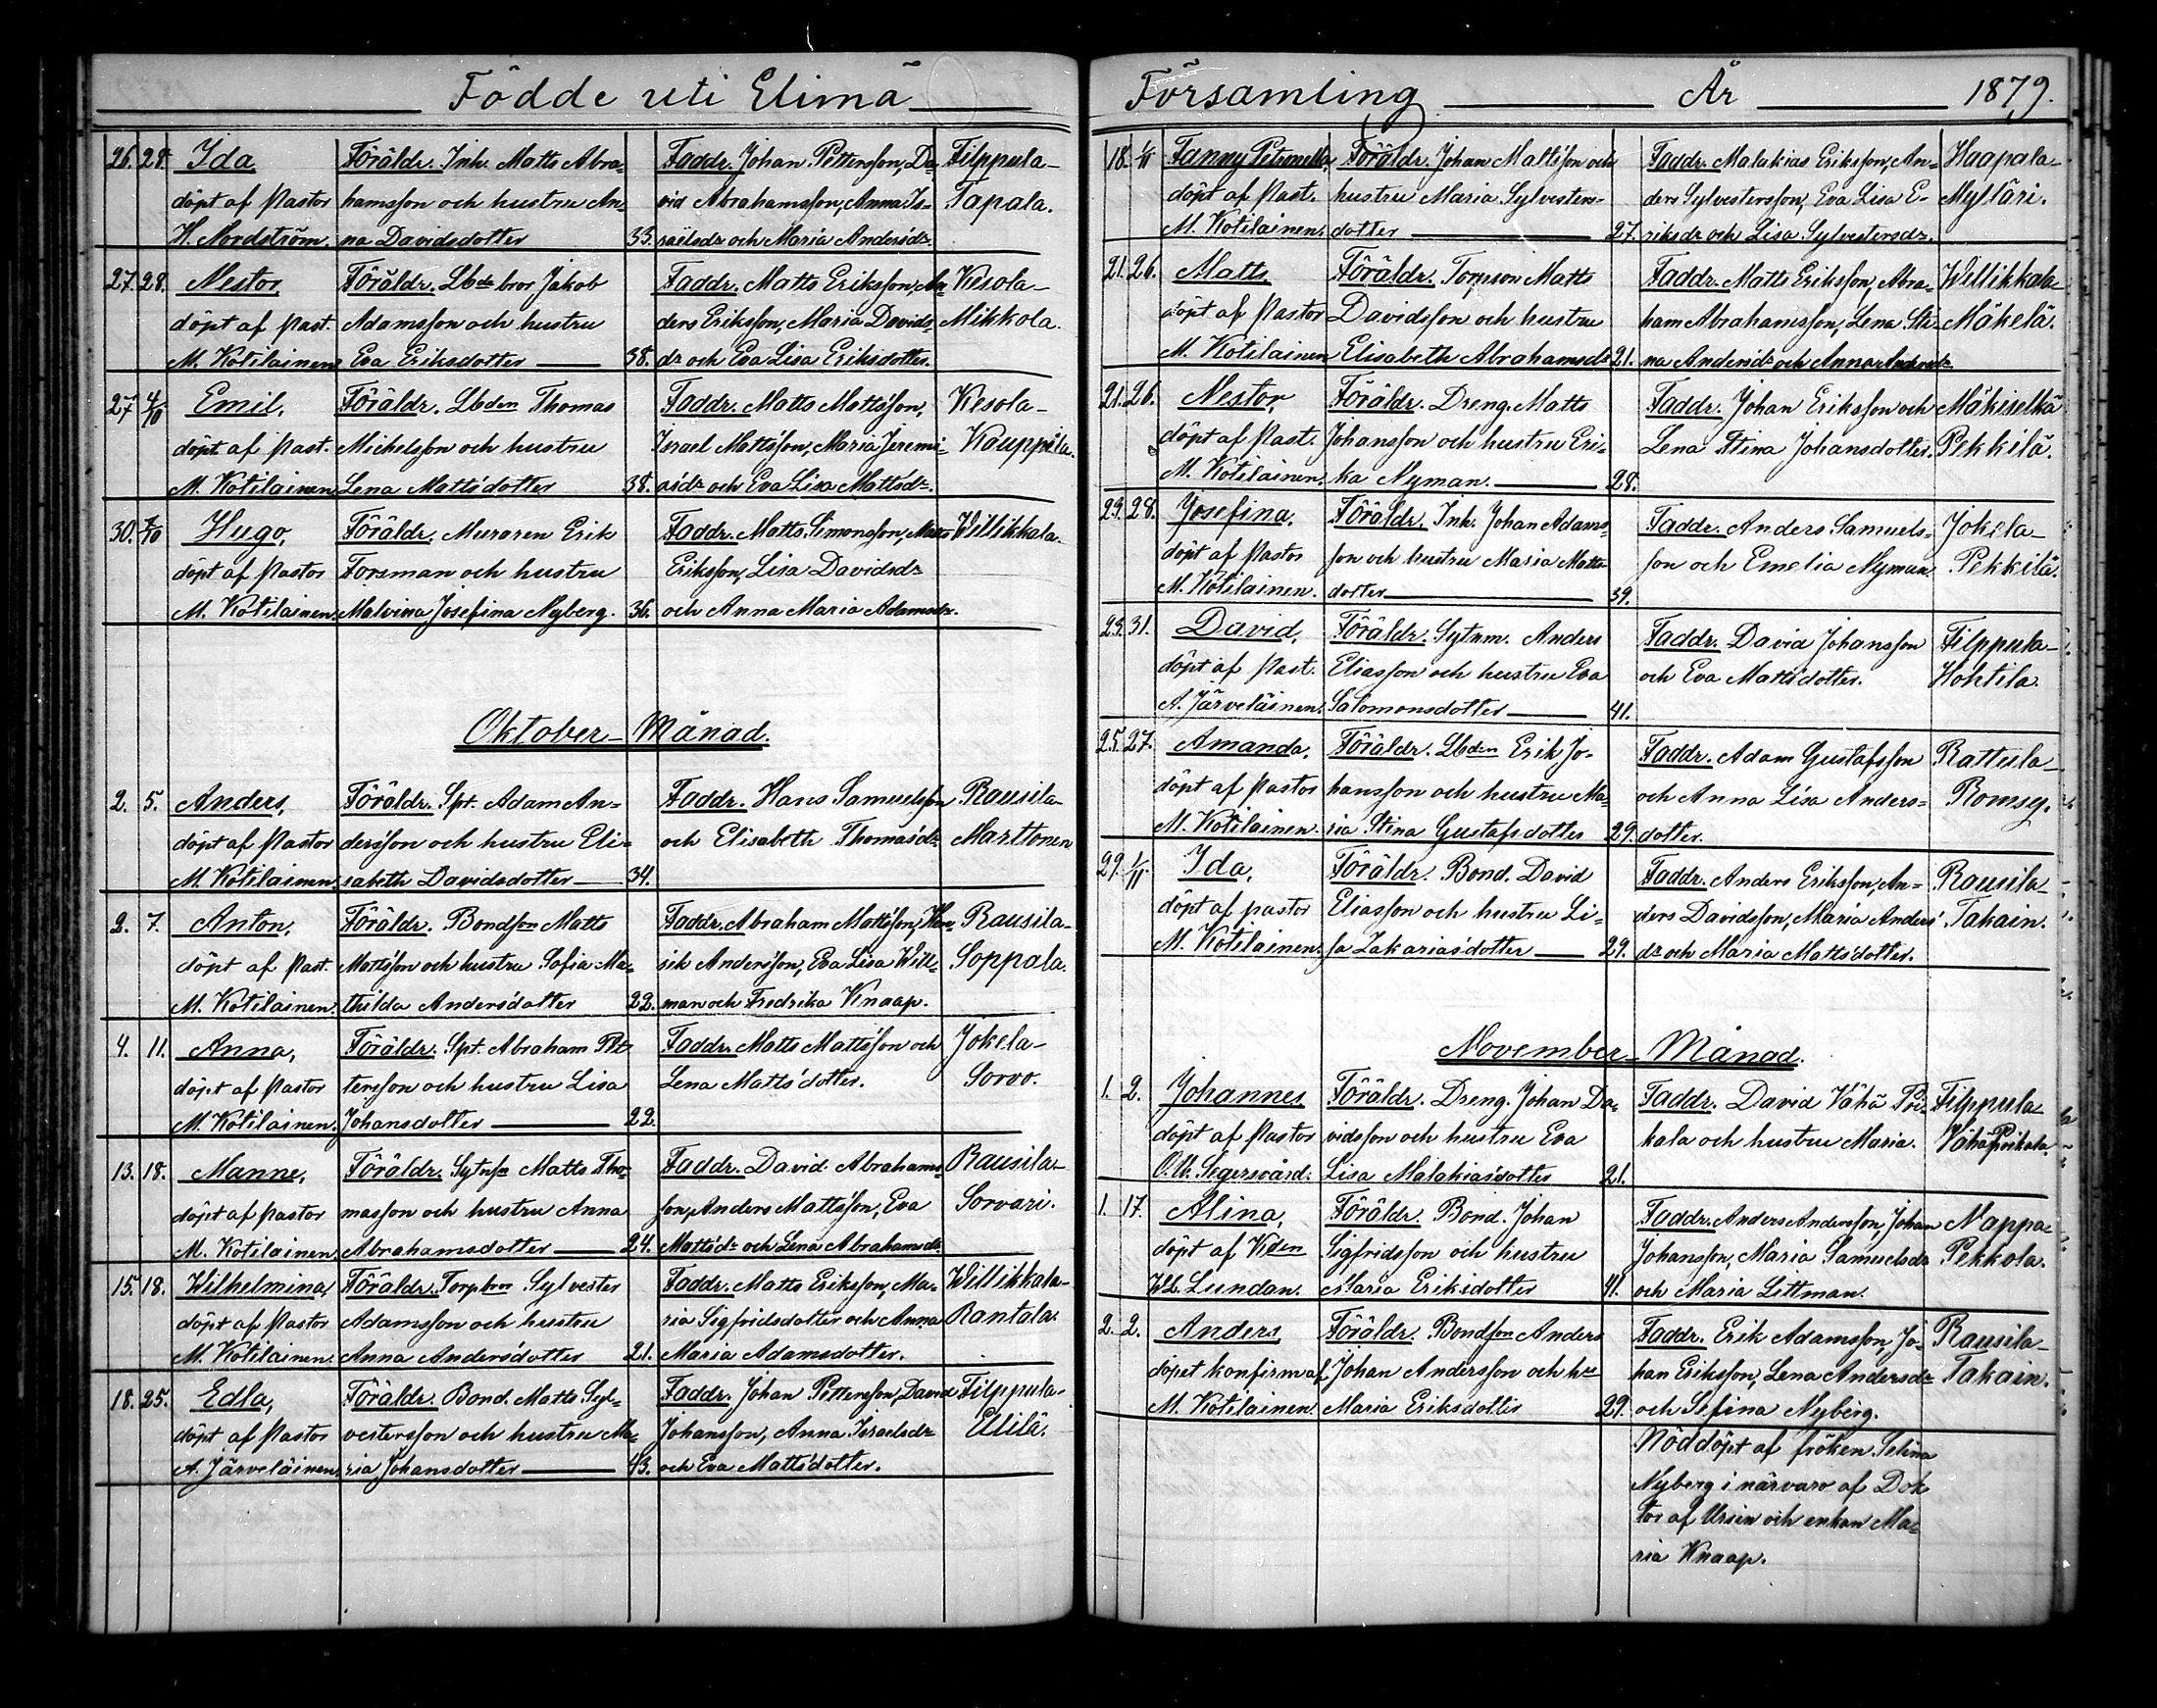 Födde uti Elimä
26. 28. Ida Föräldr. Inh. Matts Abra- Faddr. Johan Pettersson, Da- Filppula-
döpt af Pastor hamsson och hustru An- vid Abrahamsson, Anna Is- Tapala.
H. Nordström. na Davidsdotter 33. raelsdr och Maria Andersdr.
27. 28. Nestor, Föräldr. Lbde bror Jakob Faddr. Matts Eriksson, An- Kesola-
döpt af Past. Adamsson och hustru ders Eriksson, Maria Davids- Mikkola.
M. Kotilainen Eva Eriksdotter 38. dr och Eva Lisa Eriksdotter.
27 4/10 Emil, Föräldr. Lbden Thomas Faddr. Matts Mattsson, Kesola-
döpt af Past. Michelsson och hustru Israel Mattsson, Maria Jeremi- Kauppila.
M. Kotilainen Lena Mattsdotter 38. asdr och Eva Lisa Mattsdr.
30. /10 Hugo, Föräldr. Muraren Erik Faddr. Matts Simonsson, Matts Willikkala.
döpt af Pastor Forsman och hustru Eriksson, Lisa Davidsdr
M. Kotilainen. Malvina Josefina Nyberg. 36. och Anna Maria Adamsdr.
Oktober Månad.
2. 5. Anders, Föräldr. Spt. Adam An- Faddr. Hans Samuelsson Rausila-
döpt af Pastor dersson och hustru Eli- och Elisabeth Thomasdr Marttonen
M. Kotilainen. sabeth Davidsdotter 34.
2. 7. Anton, Föräldr. Bondson Matts Faddr. Abraham Mattsson, Hen- Rausila-
döpt af Past. Mattsson och hustru Sofia Ma- rik Andersson, Eva Lisa Will- Soppala.
M. Kotilainen. thilda Andersdotter 22. man och Fredrika Knaap.
4. 11. Anna, Föräldr. Spt. Abraham Pet- Faddr. Matts Mattsson och Jokela-
döpt af Pastor tersson och hustru Lisa Lena Mattsdotter. Sorvo.
M. Kotilainen. Johansdotter 22.
13. 18. Manne, Föräldr. Sytnsn Matts Tho- Faddr. David Abrahams- Rausila-
döpt af Pastor masson och hustru Anna son, Anders Mattsson, Eva Sorvari.
M. Kotilainen. Abrahamsdotter 24. Mattsdr och Lena Abrahamsdr.
15. 18. Wilhelmina, Föräldr. Torpbror Sylvester Faddr. Matts Eriksson, Ma- Willikkala-
döpt af Pastor Adamsson och hustru ria Sigfridsdotter och Anna Rantala.
M. Kotilainen. Anna Andersdotter 21. Maria Adamsdotter.
18. 25. Edla, Föräldr. Bond. Matts Syl- Faddr. Johan Pettersson, David Filppula-
döpt af Pastor vestersson och hustru Ma- Johansson, Anna Israelsdr Ulilä.
A. Järveläinen. ria Johansdotter 43. och Eva Mattsdotter.
Församling År 1879.
18. 1/11 Fanny Petronella, Föräldr. Johan Mattsson och Faddr. Malakias Eriksson, An- Haapala-
döpt af Past. hustru Maria Sylvesters- ders Sylvestersson, Eva Lisa E- Mylläri.
M. Kotilainen. dotter 27. riksdr och Lisa Sylvestersdr.
21. 26. Matts, Föräldr. Torpson Matts Faddr. Matts Eriksson, Abra- Willikkala-
döpt af Pastor Davidsson och hustru ham Abrahamsson, Lena Sti- Mäkelä.
M. Kotilainen Elisabeth Abrahamsdr 21. na Andersdr och Anna Andersdr.
21. 26. Nestor, Föräldr. Dreng. Matts Faddr. Johan Eriksson och Mäkiselkä
döpt af Past. Johansson och hustru Eri- Lena Stina Johansdotter. Pekkilä.
M. Kotilainen. ka Nyman. 28.
23. 28. Josefina, Föräldr. Inh. Johan Adams- Faddr. Anders Samuels- Jokela-
döpt af Pastor son och hustru Maria Matts- son och Emelia Nyman. Pekkilä.
M. Kotilainen. dotter 39.
23. 31. David, Föräldr. Sytnm. Anders Faddr. David Johansson Filppula-
döpt af Past. Eliasson och hustru Eva och Eva Mattsdotter. Hohtila.
A. Järveläinen. Salomonsdotter 41.
25. 27. Amanda, Föräldr. Lbden Erik Jo- Faddr. Adam Gustafsson Rattula-
döpt af Pastor hansson och hustru Ma- och Anna Lisa Anders- Romsy.
M. Kotilainen. ria Stina Gustafsdotter 29. dotter.
29. 1/11. Ida, Föräldr. Bond. David Faddr. Anders Eriksson, An- Rausila-
döpt af pastor Eliasson och hustru Li- ders Davidsson, Maria Anders- Takain.
M. Kotilainen. sa Zakariasdotter 29. dr och Maria Mattsdotter.
November Månad.
1. 2. Johannes Föräldr. Dreng. Johan Da- Faddr. David Vähä Pri- Filppula-
döpt af Pastor vidsson och hustru Eva kala och hustru Maria. Vähä Prikala.
O. W. Segersvärd. Lisa Malakiasdotter 21.
1. 17. Alina, Föräldr. Bond. Johan Faddr. Anders Andersson, Johan Nappa-
döpt af Kden Sigfridsson och hustru Johansson, Maria Samuelsdr Pekkola.
Lundan. Maria Eriksdotter 41. och Maria Littman.
2. 2. Anders Föräldr. Bondson Anders Faddr. Erik Adamsson, Jo- Rausila-
döpet konfirm af Johan Andersson och hu han Eriksson, Lena Andersdr Takain.
M. Kotilainen. Maria Eriksdotter 29. och Sefina Nyberg.
Nöddöpt af fröken Selma
Nyberg i närvaro af Dok
tor af Ursin och enkan Ma-
ria Knaap.